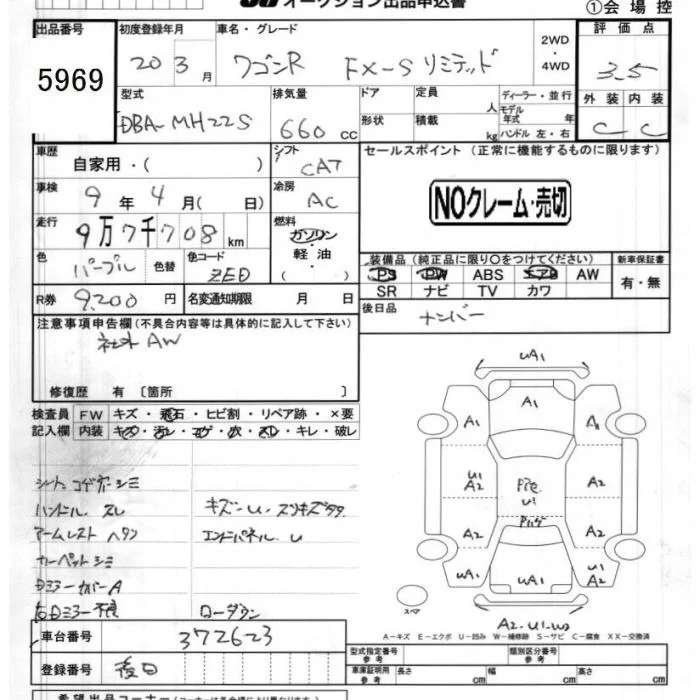 オークション出品申込書
①会場控
出品番号 初度登録年月 車名・グレード 評価点
5969 20年3月 ワゴンR FX-S リミテッド 2WD ・ 4WD 3.5
型式 排気量 ドア 定員 人 ディーラー・並行 外装 内装
DBA-MH22S 660cc 形状 積載 kg モデル年式 年 ハンドル 左・右 C C
車歴 自家用・( ) シフト CAT セールスポイント(正常に機能するものに限ります)
車検 9年4月( 日) 冷房 AC NOクレーム・売切
走行 9万7千708km 燃料 ガソリン・軽油・( )
装備品(純正品に限り〇をつけてください) 新車保証書
色 パープル 色替 色コード ZED PS PW ABS エアB AW 有・無
SR ナビ TV カワ
R券 9,200円 名変通知期限 月 日 後日品 ナンバー
注意事項申告欄(不具合内容等は具体的に記入して下さい)
社外AW
修復歴 有〔箇所 〕
検査員記入欄 FW キズ・飛石・ヒビ割・リペア跡・×要
内装 キズ・汚レ・コゲ・穴・スレ・キレ・破レ
シート コゲ シミ
ハンドル スレ キズ-U スリキズ
アームレスト ヘタリ エンドパネル U
カーペット シミ
Dミラーカバー A
右Dミラー不良 ローダウン
UA1
A1
A1 A1
U1 A2 U1 A2
A2 A2
UA1 UA1 U1 A2
スペア
A2-U1-W2
A－キズ E－エクボ U－凹み W－補修跡 S－サビ C－腐食 XX－交換済
車台番号 372623 型式指定番号 参考 類別区分番号 参考
登録番号 後日 車庫証明用 参考 長さ cm 幅 cm 高さ cm
希望出品コーナー